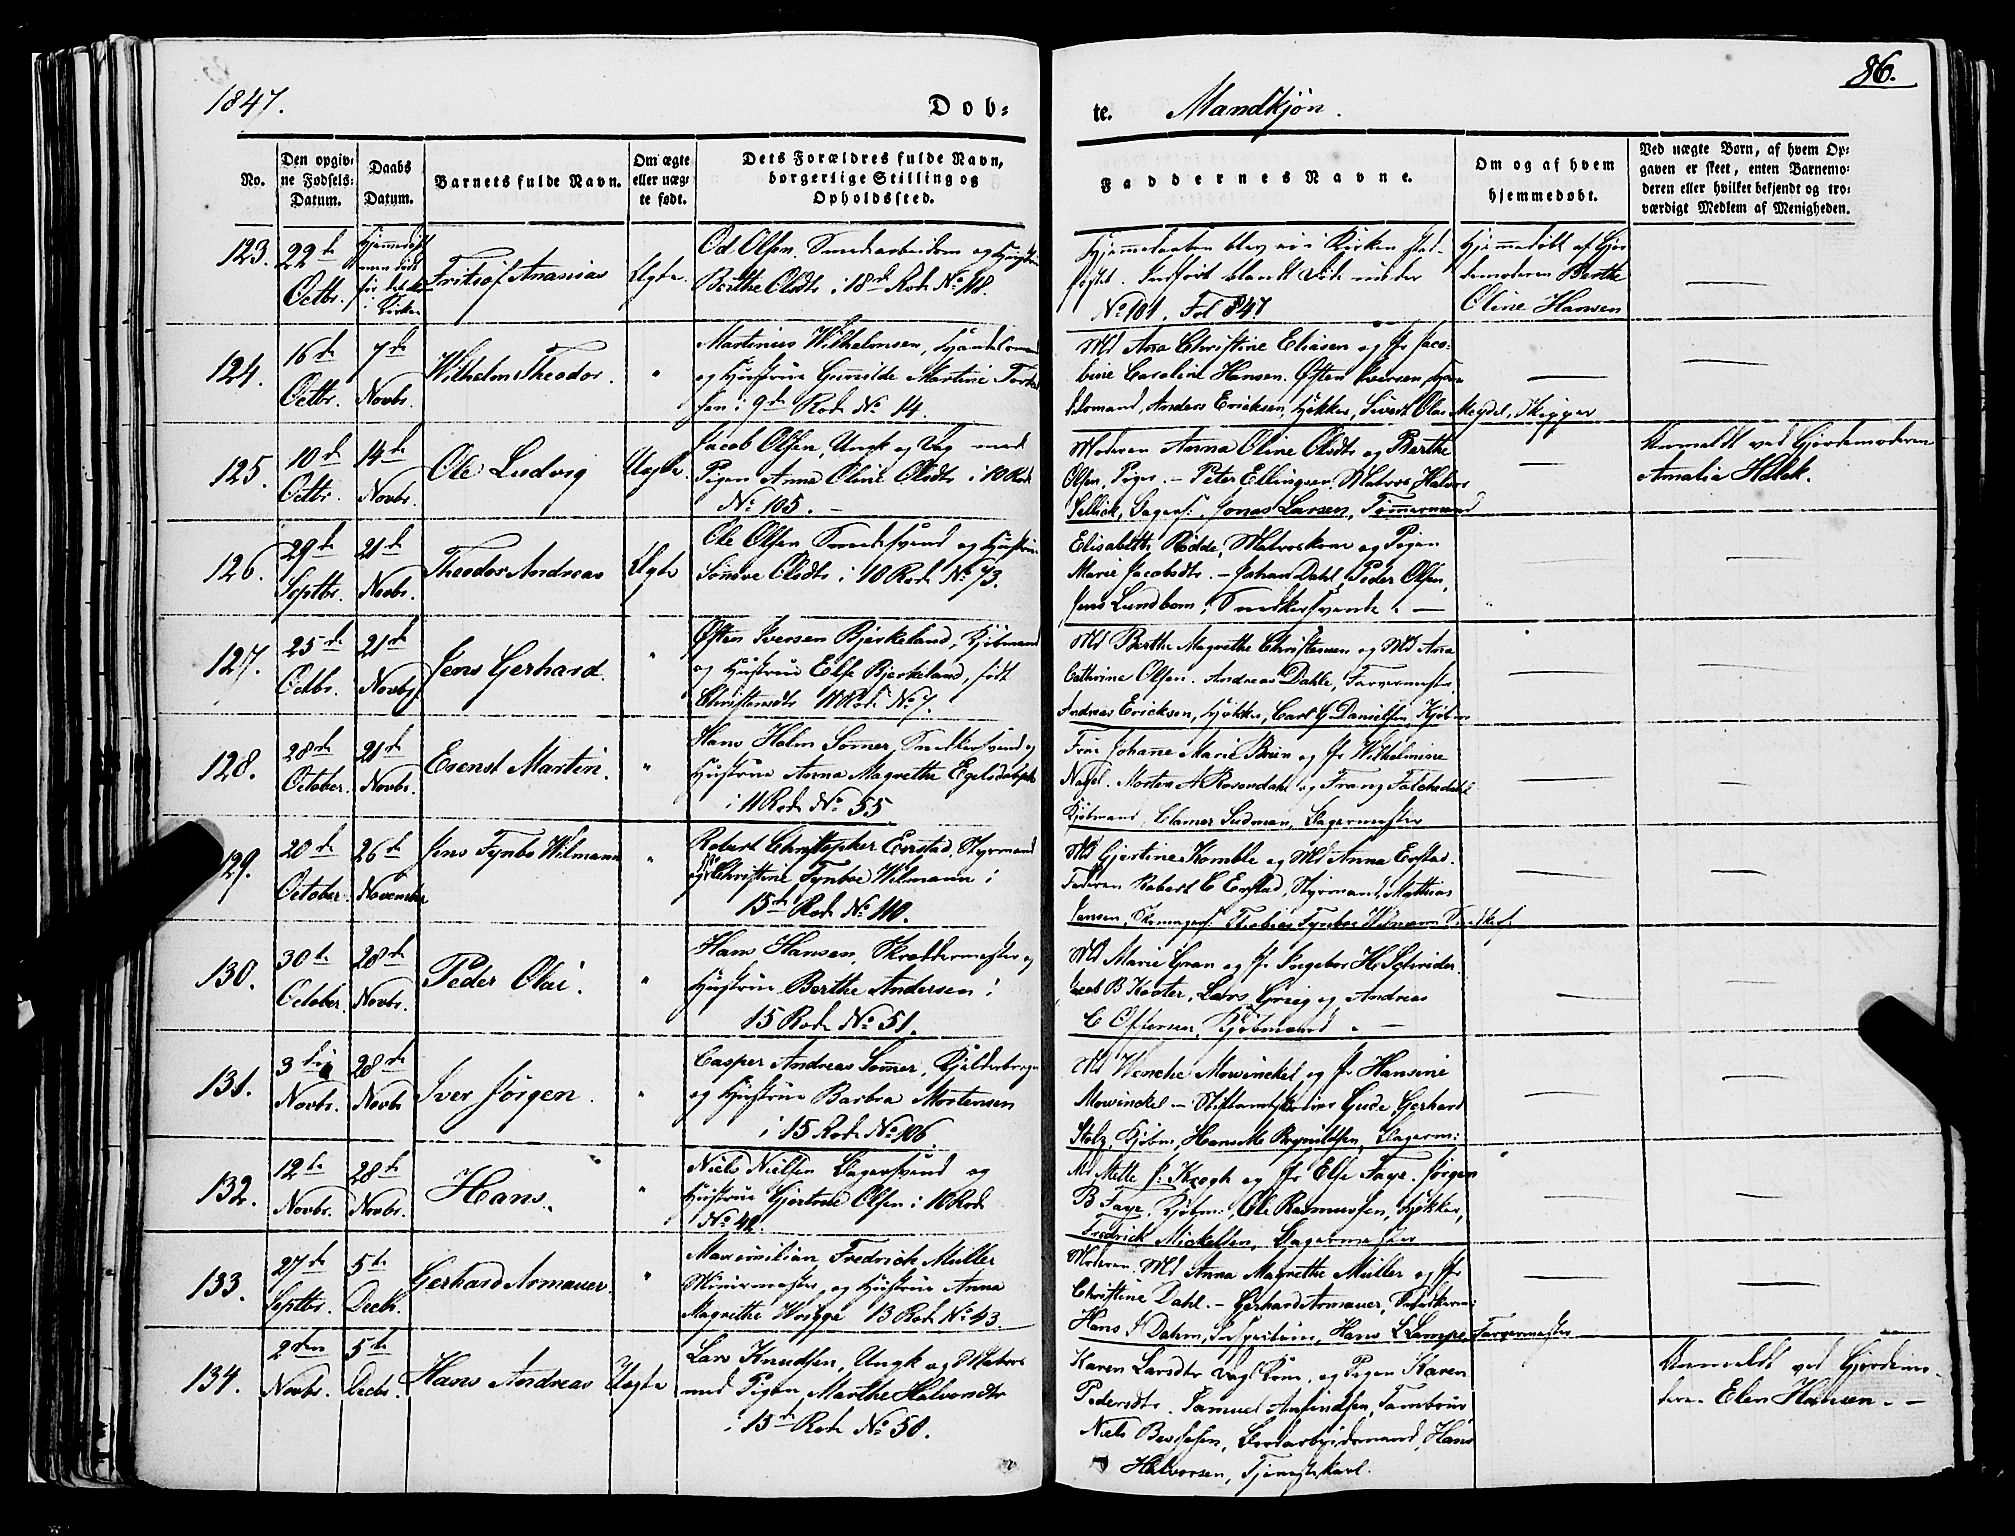 86.
1847.
Døb-
te.
Mandkjøn.
No.
Den opgiv-
ne Fødsels-
Datum.
Daabs
Datum.
Barnets fulde Navn.
Om ægte
eller uæg-
te født.
Dets Forældres fulde Navn,
borgerlige Stilling og
Opholdssted.
Faddernes Navne.
Om og af hvem
hjemmedøbt.
Ved uægte Børn, af hvem Op-
gaven er skeet, enten Barnemo-
deren eller hvilket bekjendt og tro-
værdigt Medlem af Menigheden.
123.
22de
Octbr.
Hjemmedøbt
men død
før det kom
i Kirke
Fritiof Ananias
Ægte
Od. Olsen. Smedearbeider og Hustru
Berthe Olsdtr i 18de Rode No 118.
Hjemmedaaben blev ei i Kirken stad-
fæstet. Indført blandt Døde under
No 181. Fol 847
Hjemmedøbt af Gjor-
demoderen Berthe
Oline Hansen
124.
16de
Octbr.
7de
Novbr.
Wilhelm Theodor.
"
Martinus Wilhelmsen, Handelsmand
og Hustrue Gunnilde Martine
i 9de Rode No 14.
Md Ana Christine Eliasen og Jfr Jaco-
bine Caroline Hansen. Østen Iversen,
Anders Ericksen, Høkker, Sivert Olai Meydel, Skipper
125.
10de
Octbr.
14de
Novbr.
Ole Ludvig
Uægte
Jacob Olsen, Ungk og Vag med
Pigen Anna Oline Olsdtr i 10 Rode
No 105. —
Moderen Anna Oline Olsdtr og Berthe
Olsen, Piger. — Peter Ellingsen, Matros, Halvor
Jonas Larsen, Tømmermænd
Anmeldt ved Gjordemoderen
Amalia Holck.
126.
29de
Septbr.
21de
Novbr.
Theodor Andreas
Ægte
Ole Olsen Smedesvend og Hustrue
Sønneve Olsdtr i 10 Rode No 73.
Elisabeth Rødde, Matroskone og Pigen
Marie Jacobsdtr. — Johan Dahl, Peder Olsen,
Jens Lundbom, Snedkersvende. —
127.
25de
Octbr.
21de
Novbr.
Jens Gerhard.
"
Østen Iversen Bjerkeland, Kjøbmand
og Hustrue Else Bjerkeland, født
Christensdtr 11 Rode No 7.
Md Berthe Magrethe Christensen og Md Ana
Cathrine Olsen. Andreas Dahle, Farvermester,
Andreas Ericksen, Høkker, Carl G Danielsen, Kjøbm
128.
28de
October.
21de
Novbr.
Ernst Martin.
"
Hans Holm Sømer, Snedkersvend og
Hustrue Anna Magrethe
i 11 Rode No 55
Frue Johanne Marie Brun og Jfr Wilhelmine
Nagel. Morten A Rosendahl og Franz
Kjøbmænd, Clamer Sudman, Slagermester
129.
20de
October.
26de
November
Jens Fynboe Wilmann
"
Robert Christopher Eerstad, Styrmand
og Hst Christine Fynboe Wilmann i
15de Rode No 110.
Md Gjertine Komble og Md Anna Erstad.
Faderen Robert C Erstad, Styrmand, Mathias
Jansen, Skomagers. Tobias Fynboe Wilmann Snedkers.
130.
30te
October.
28de
Novbr.
Peder Olai.
"
Hans Hansen, Skræddermester og
Hustrue Berthe Andersen i
15 Rode No 51.
Md Marie Gran og Jfr Ingebor H Schrøder.
Jacob B Kooter, Lars Grieg og Andreas
C Offersen, Kjøbmænd. —
131.
3die
Novbr.
28de
Novbr
Iver Jørgen.
"
Casper Andreas Sømer, Kjelderborger
og Hustrue Barbra Mortensen
i 15 Rode No 106.
Md Wenche Mowinckel og Jfr Hansine
Mowinckel — Gude, Gerhard
Stolz, Kjøbm, Hans M Reynildsen, Slagerm:
132.
12te
Novbr.
28de
Novbr.
Hans.
"
Niels Nielsen Slagersvend og
Hustrue Gjertrue Olsen i 16 Rode
No 42.
Md Mette S: Krogh og Jfr Else Faye. Jørgen
B Faye, Kjøbm:, Ole Rasmussen, Høkker,
Fredrick Mickelsen, Slagermester
133.
27de
Septbr.
5te
Decbr.
Gerhard Armauer.
"
Maximilian Fredrick Müller
Murermester, og Hustrue Anna
Magrethe 13 Rode No 43.
Moderen. Md Anna Magrethe Müller og Jfr
Christine Dahl. — Gerhard Armauer, Snedkerm:
Hans J Dahm, Hans L Lampe, Farvermester
134.
2den
Novbr.
5te
Decbr.
Hans Andreas
Uægte
Lars Knudsen, Ungk og Matros
med Pigen Marthe Halvorsdtr
i 15de Rode No 50.
Karen Larsdtr Vagt Kone, og Pigen Karen
Pedersdtr. Samuel Amundsen, Tambour
Niels Hans
Halvorsen, Tjenestekarl.
Anmeldt ved Gjordemo-
deren Elen Hansen. —